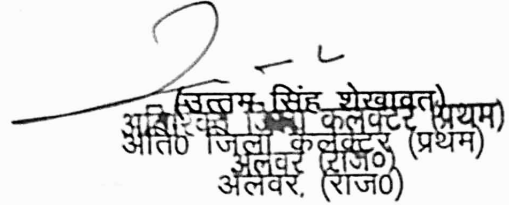 (उत्तम सिंह शेखावत)
अतिरिक्त जिला कलक्टर (प्रथम)
अति० जिला कलक्टर (प्रथम)
अलवर (राज०)
अलवर, (राज०)